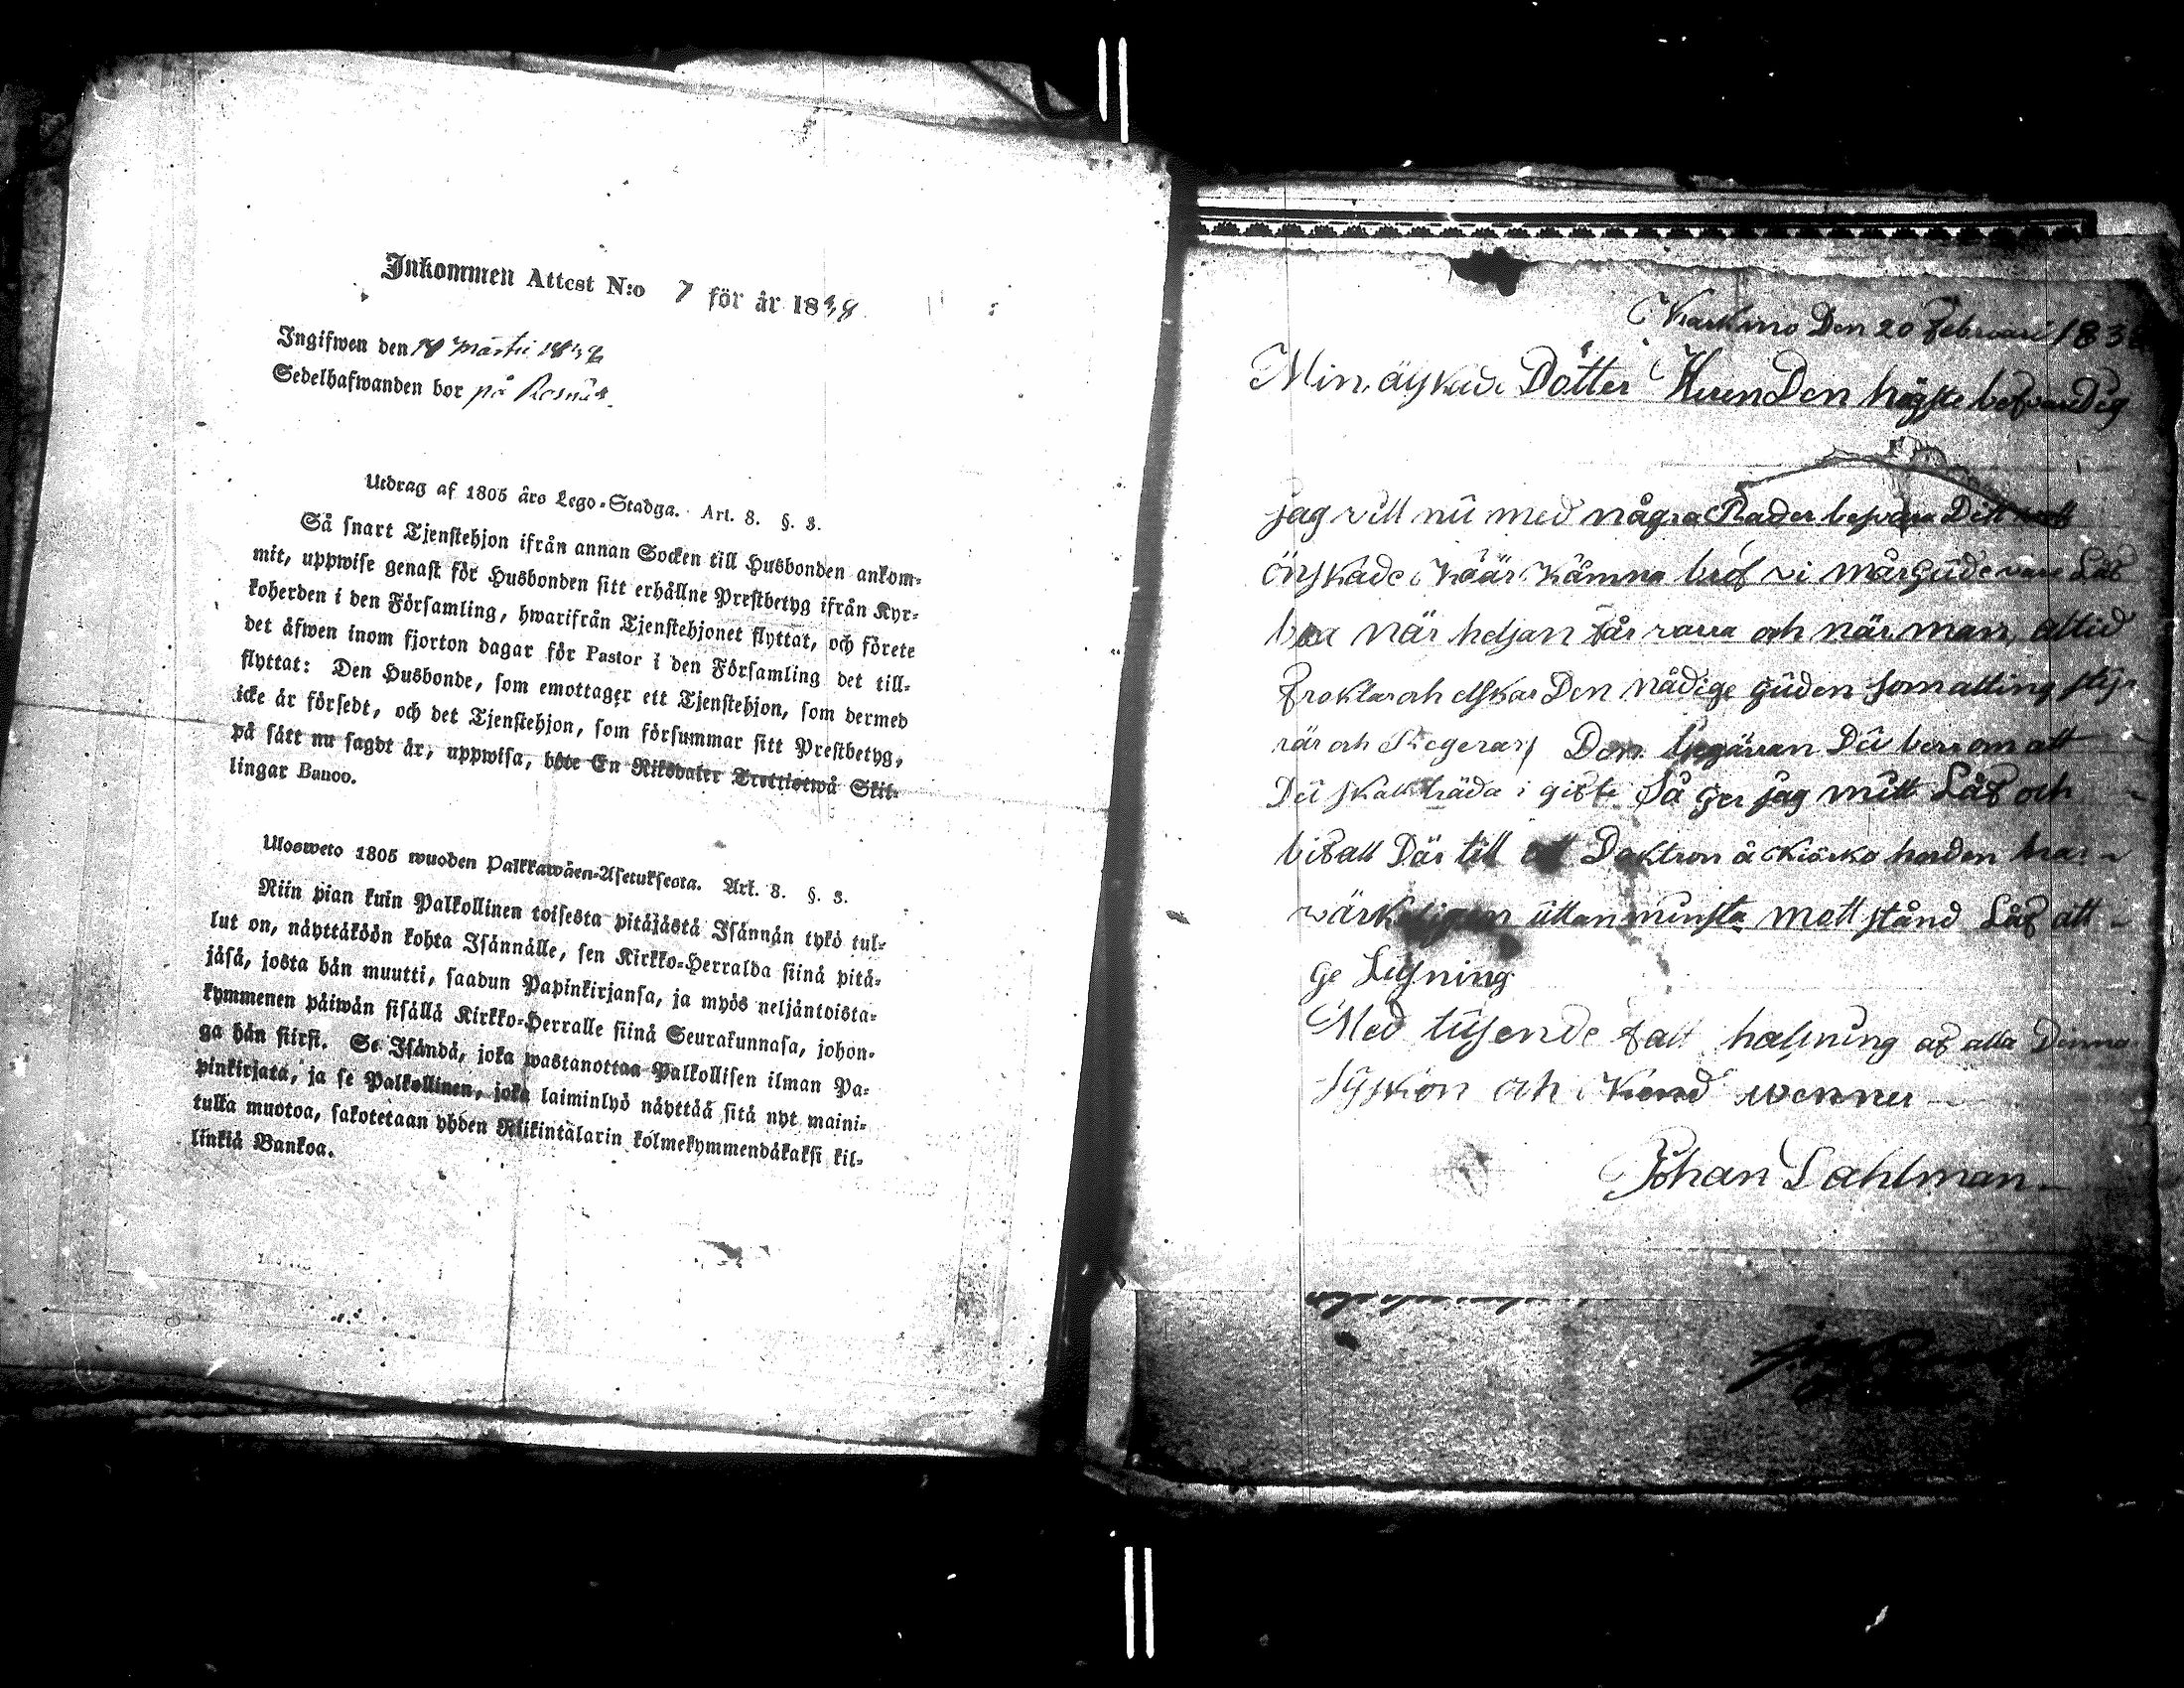 Inkommen Attest N:o 7 för år 1838
Ingifwen den 18 Martii 1838
Sedelhafwanden bor på
Utdrag af 1805 års Lego-Stadga. Art. 8. §. 3.
Så snart Tjenstehjon ifrån annan Socken till Husbonden ankom-
mit, uppwise genast för Husbonden sitt erhållne Prestbetyg ifrån Kyr-
koherden i den Församling, hwarifrån Tjenstehjonet flyttat, och förete
det äfwen inom fjorton dagar för Pastor i den Församling det till-
flyttat: Den Husbonde, som emottager ett Tjenstehjon, som dermed
icke är försedt, och det Tjenstehjon, som försummar sitt Prestbetyg,
på sätt nu sagdt är, uppwisa, böte En Riksdaler Trettiotwå Skil-
lingar Banco.
Ulosweto 1805 wuoden Palkkawäen-Asetuksesta. Art. 8. §. 3.
Niin pian kuin Palkollinen toisesta pitäjästä Isännän tykö tul-
lut on, näyttäköön kohta Isännälle, sen Kirkko-Herralda siinä pitä-
jäsä, josta hän muutti, saadun Papinkirjansa, ja myös neljäntoista-
kymmenen päiwän sisällä Kirkko-Herralle siinä Seurakunnasa, johon-
ga hän siirsi. Se Isändä, joka wastanottaa Palkollisen ilman Pa-
pinkirjata, ja se Palkollinen, joka laiminlyö näyttää sitä nyt maini-
tulla muotoa, sakotetaan yhden Riikintalarin kolmekymmendäkaksi kil-
linkiä Bankoa.
Karkino Den 20 Februari 1838
Min äyskade Dotter Den högste befvare Dig
jag vill nu med några Rader besvara Ditt
önskade Käär Kämna bref vi mår gude vare Låf
bra när helsan får vara och när man altid
froktar och elskar Den nådige guden som alting styr
rär och Regerar Den begäran Du ber om att
Du skall träda i gifte Så ger jag mitt Låf och
bifall Där till att Doktron å Kiörko herden har
wärkeligen uttan minsta mott stånd Låf att
ge Lysning
Med tusende falt halsning af alla Dinna
syskon och Kend wenner
Johan Lahlman